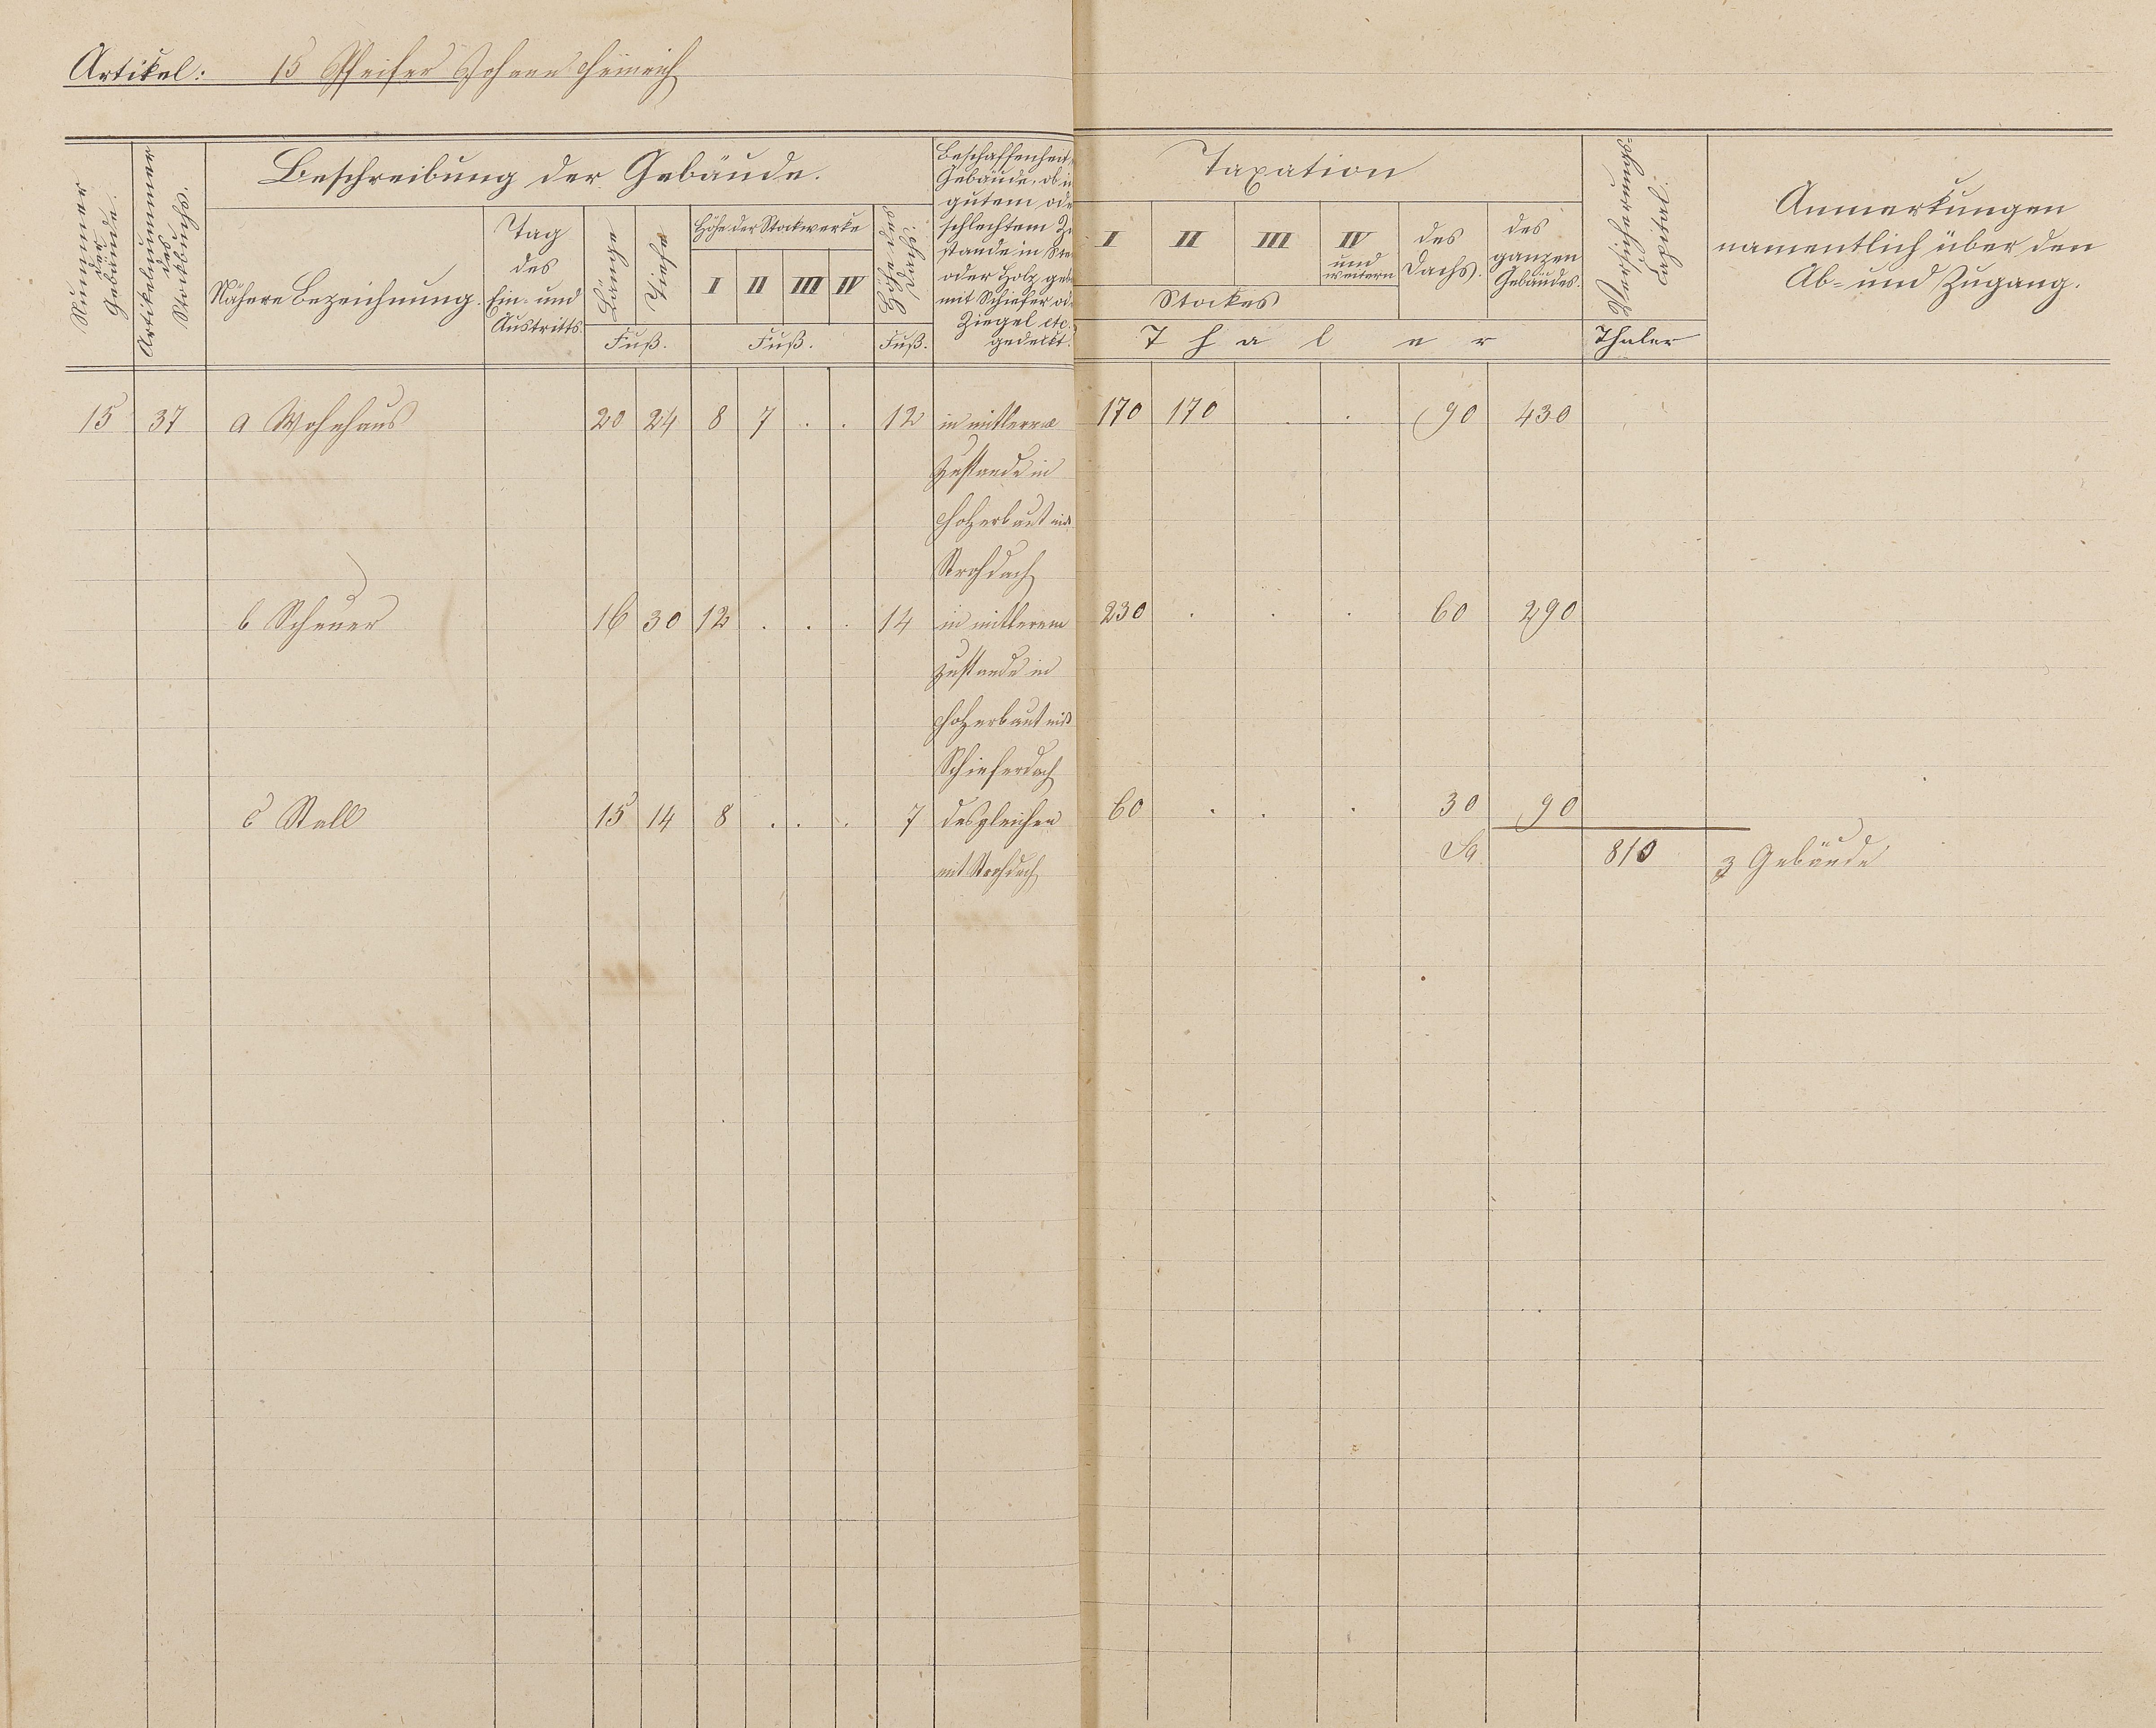 Artikel: 15 Pfeifer Johann Heinrich
Nummer der Gebäude.
Artikelnummer des Stockbuchs.
Beschreibung der Gebäude.
Nähere Bezeichnung.
Tag
des
Ein- und
Austritts
Länge
Tiefe
Fuß.
Höhe der Stockwerke
I II III IV
Fuß.
Höhe des Dachs.
Fuß.
Beschaffenheit
Gebäude, ob in
gutem ode
schlechtem Zu
stande in Stei
oder Holz geb
mit Schiefer od
Ziegel etc.
gedeckt.
Taxation
I II III IV
und
weitern
Stockes
des
Dachs.
des
ganzen
Gebäudes.
Thaler
Versicherungs Capital.
Thaler
Anmerkungen
namentlich über den
Ab- und Zugang.
15 37 a Wohnhaus 20 24 8 7 . . 12 in mitlerem 170 170 . . 90 430
Zustande in
Holz erbaut mit
Strohdach
b Scheuer 16 30 12 . . . 14 in mitlerem 230 . . . 60 290
Zustande in
Holz erbaut mit
Schieferdach
c Stall 15 14 8 . . . 7 desgleichen 60 . . . 30 90
mit Strohdach Sa. 810 3 Gebäude